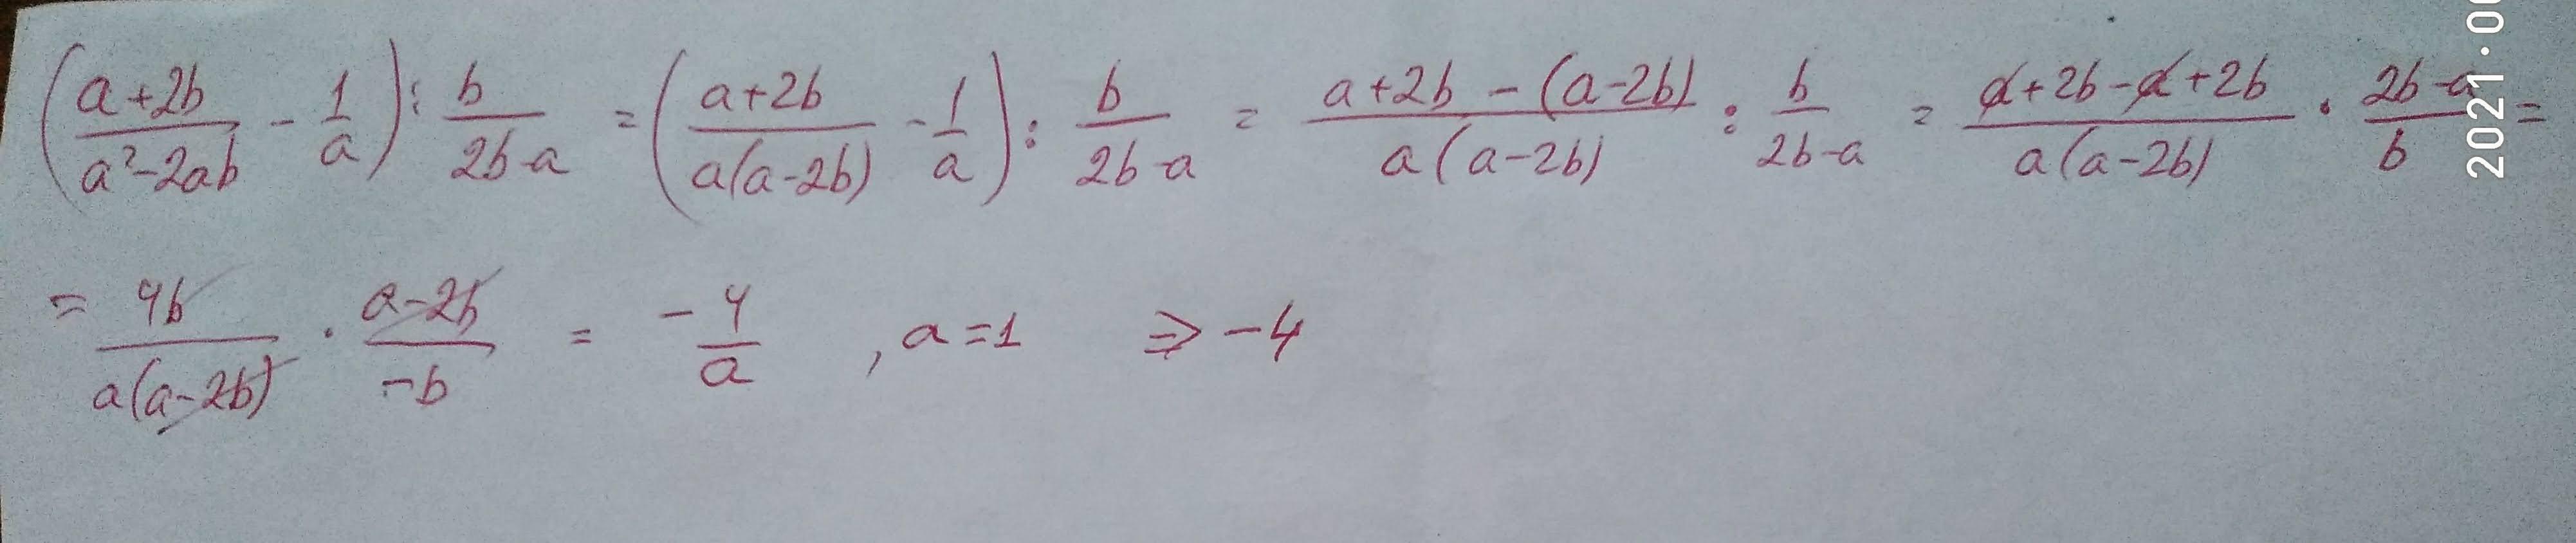 (a+2b/a²-2ab - 1/a) : b/2b-a = (a+2b/a(a-2b) - 1/a) : b/2b-a = a+2b-(a-2b)/a(a-2b) : b/2b-a = a+2b-a+2b/a(a-2b) · 2b-a/b =
= 4b/a(a-2b) · a-2b/-b = -4/a , a=1 ⇒ -4
2021·0